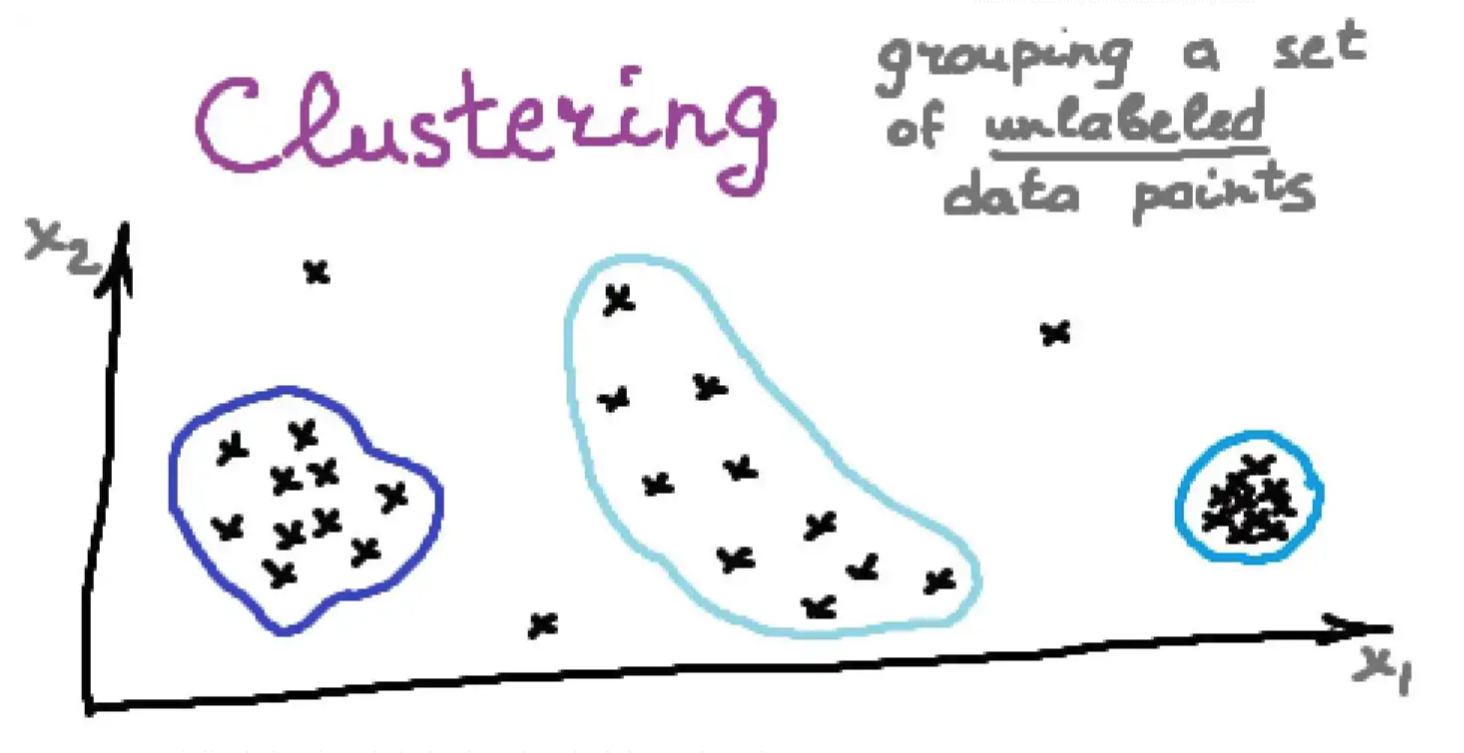 Clustering
grouping a set
of unlabeled
data points
x₂
x₁